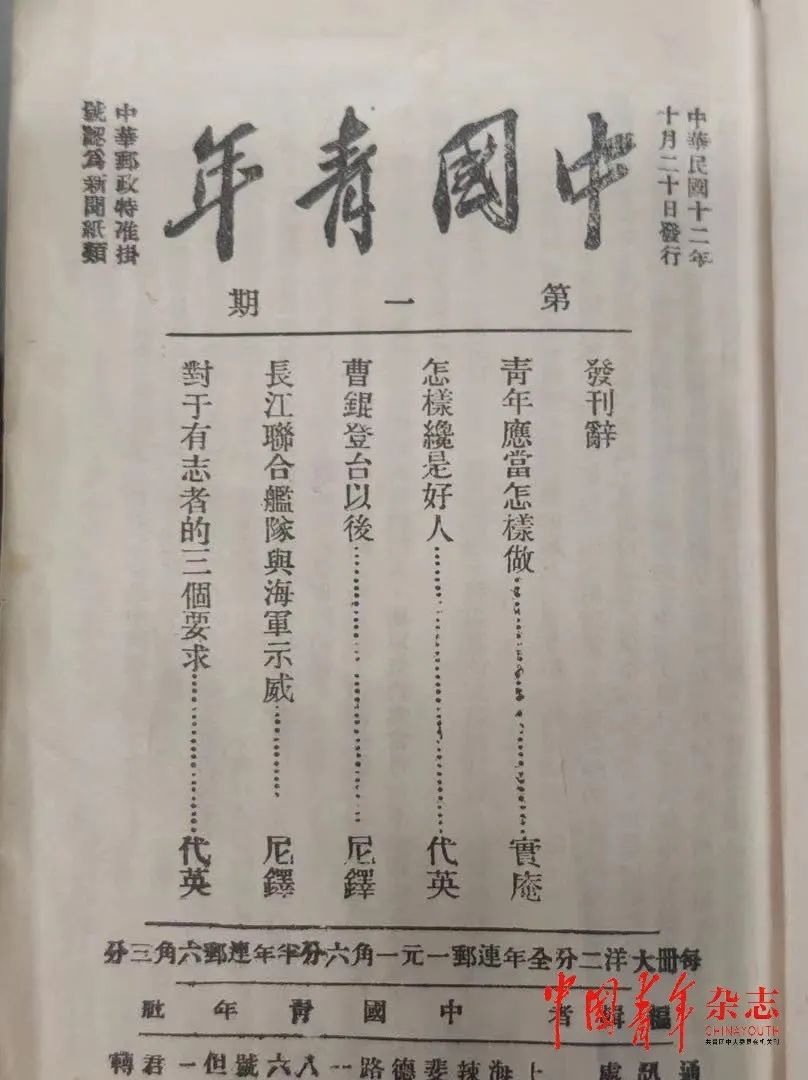 中華民國十二年
十月二十日發行
中國青年
第一期
中華郵政特准掛
號認爲新聞紙類
發刊辭
青年應當怎樣做……實庵
怎樣纔是好人……代英
曹錕登台以後……尼鐸
長江聯合艦隊與海軍示威……尼鐸
對于有志者的三個要求……代英
每冊大洋二分全年連郵一元一角六分半年連郵六角三分
編輯者 中國青年社
通訊處 上海辣斐德路一八六號但一君轉
中国青年杂志
CHINAYOUTH
共青团中央委员会机关刊